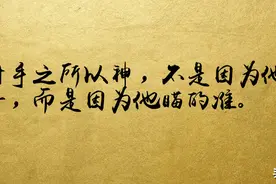 手之所以神，不是因为他
，而是因为他瞄的准。